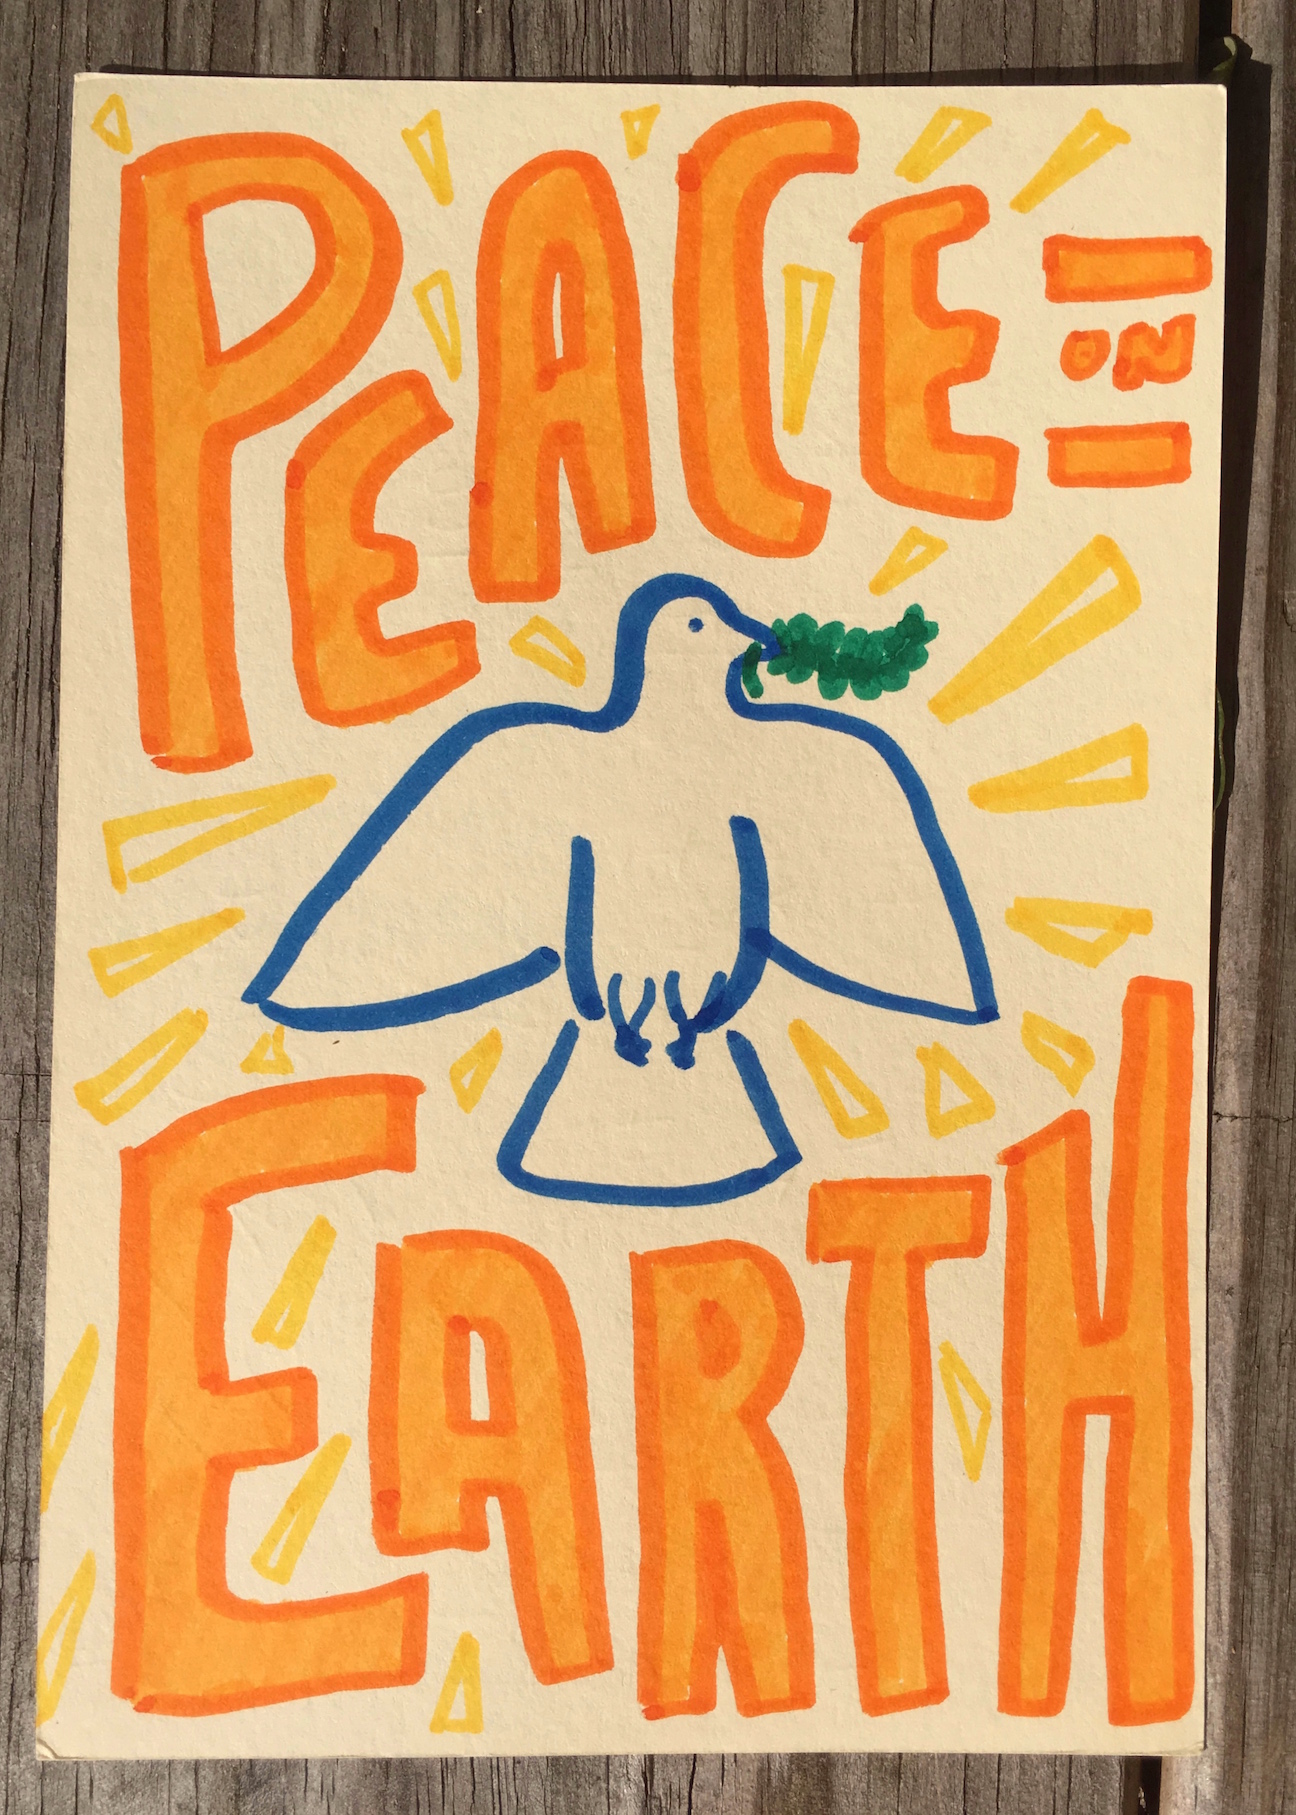 PEACE
ON
EARTH